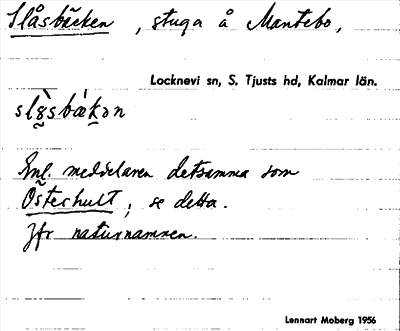 Slåsbäcken , stuga å Mantebo,
Locknevi sn, S. Tjusts hd, Kalmar län.
Enl. meddelaren detsamma som
Österhult, se detta.
Jfr naturnamnen.
Lennart Moberg 1956